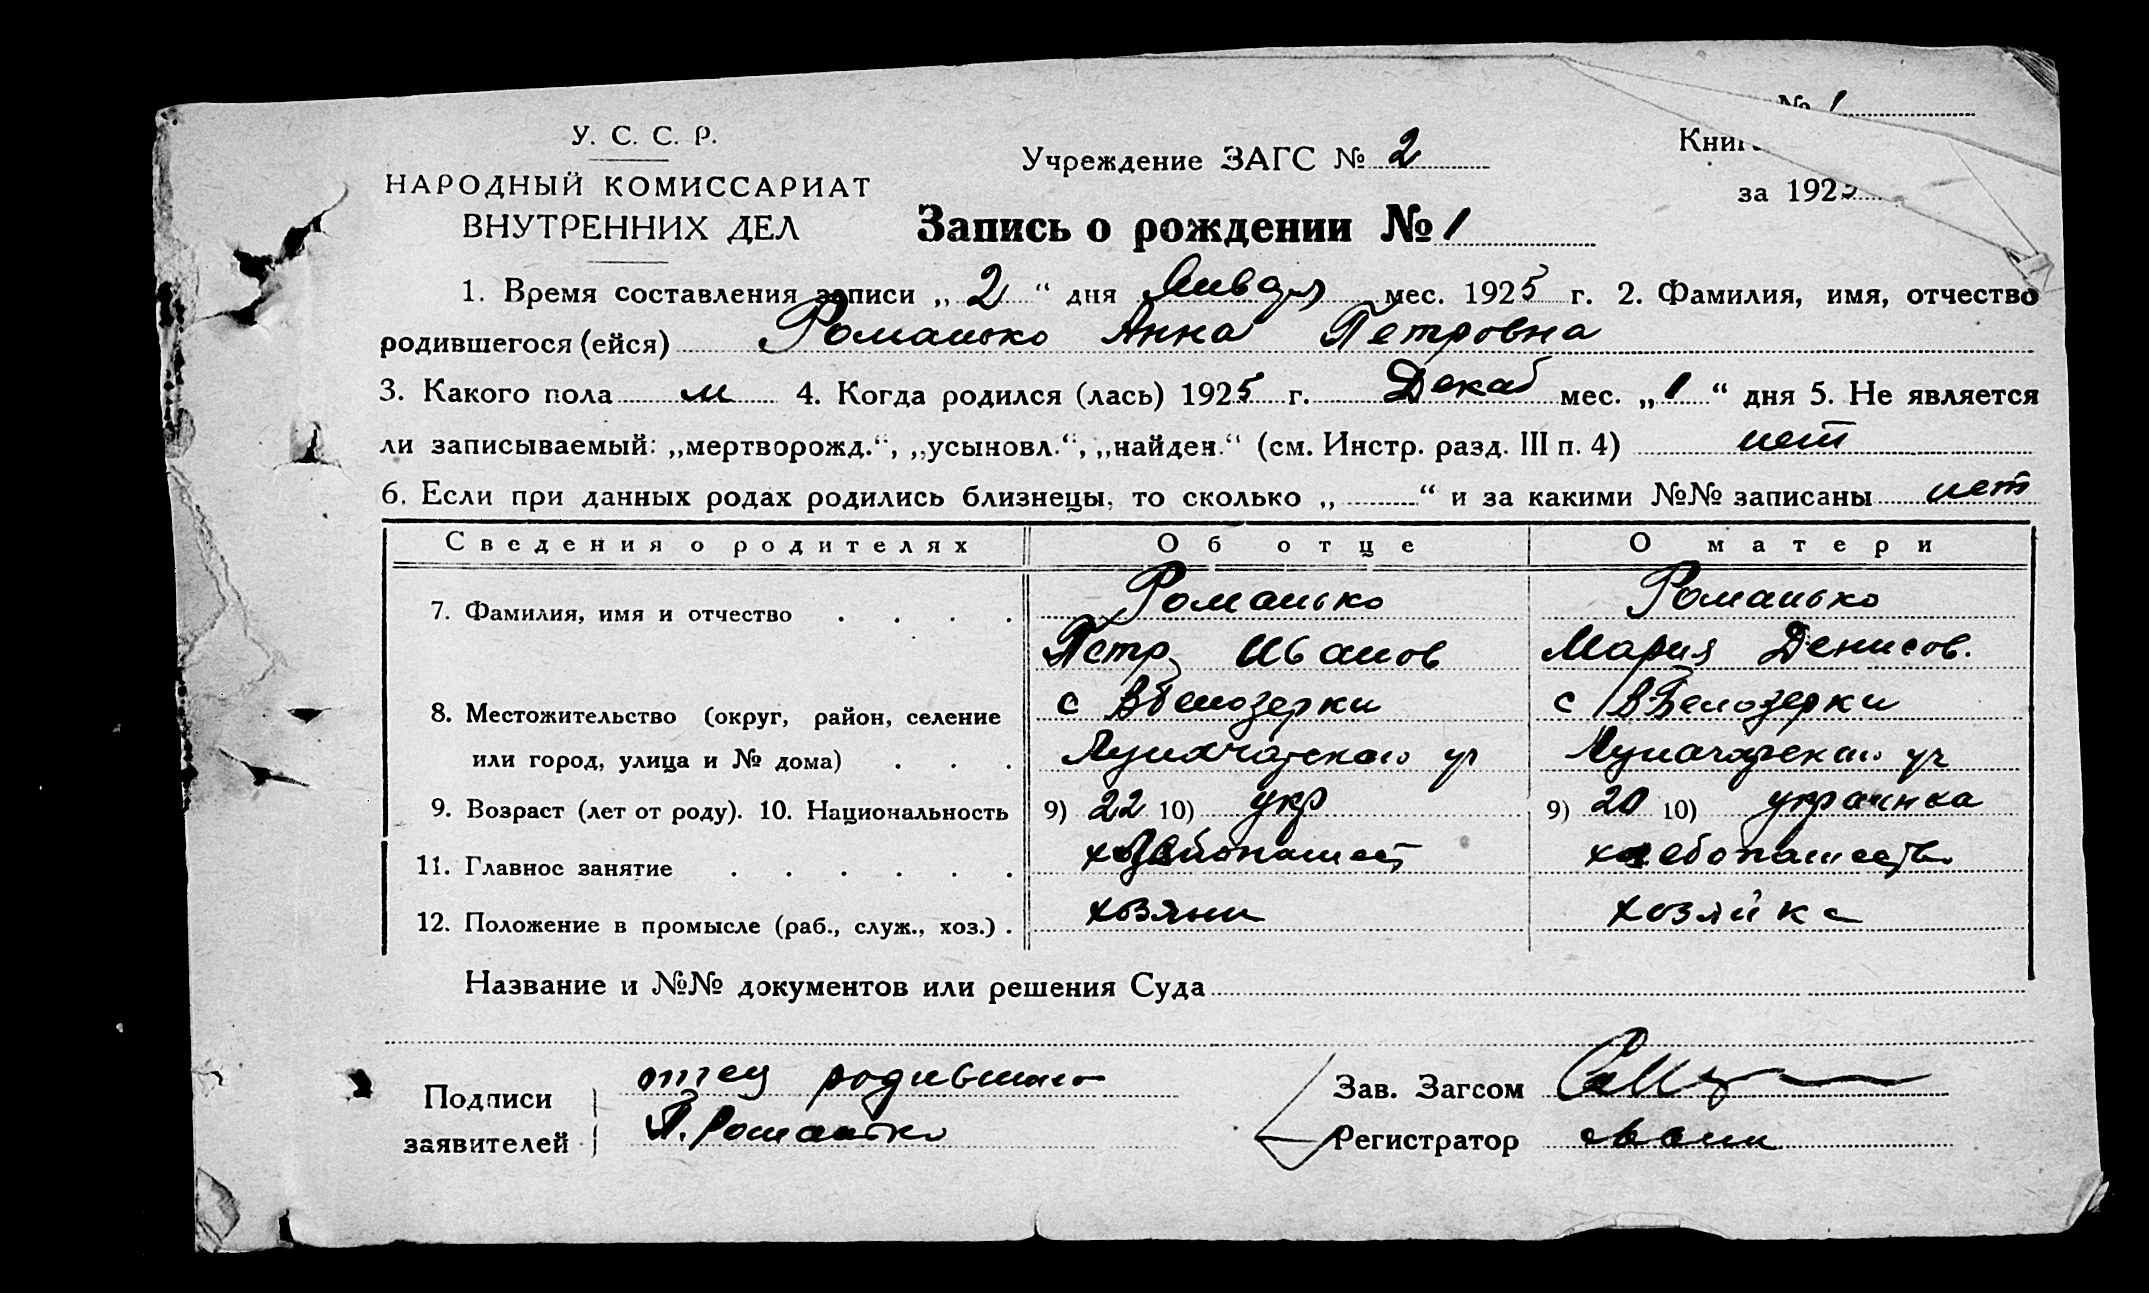 № 1
У. С. С. Р.
НАРОДНЫЙ КОМИССАРИАТ
ВНУТРЕННИХ ДЕЛ
Учреждение ЗАГС № 2
за 1925
Запись о рождении № 1
1. Время составления записи „ 2 “ дня Январ мес. 1925 г. 2. Фамилия, имя, отчество
родившегося (ейся) Романько Анна Петровна
3. Какого пола м 4. Когда родился (лась) 1925 г. Декаб мес. „ 1 “ дня 5. Не является
ли записываемый: „мертворожд.“, „усыновл.“, „найден.“ (см. Инстр. разд. III п. 4) нет
6. Если при данных родах родились близнецы, то сколько „ “ и за какими №№ записаны нет
Сведения о родителях Об отце О матери
7. Фамилия, имя и отчество . . . . Романько Романько
Петр Иванов Мария Денисов.
8. Местожительство (округ, район, селение с ВБелозерки с В-Белозерки
или город, улица и № дома) . . .
9. Возраст (лет от роду). 10. Национальность 9) 22 10) укр 9) 20 10) украинка
11. Главное занятие . . . . . . хлебопашест хлебопашеств
12. Положение в промысле (раб., служ., хоз.) . хозяин хозяйка
Название и №№ документов или решения Суда
Подписи отец родившаго Зав. Загсом
заявителей П. Романько Регистратор